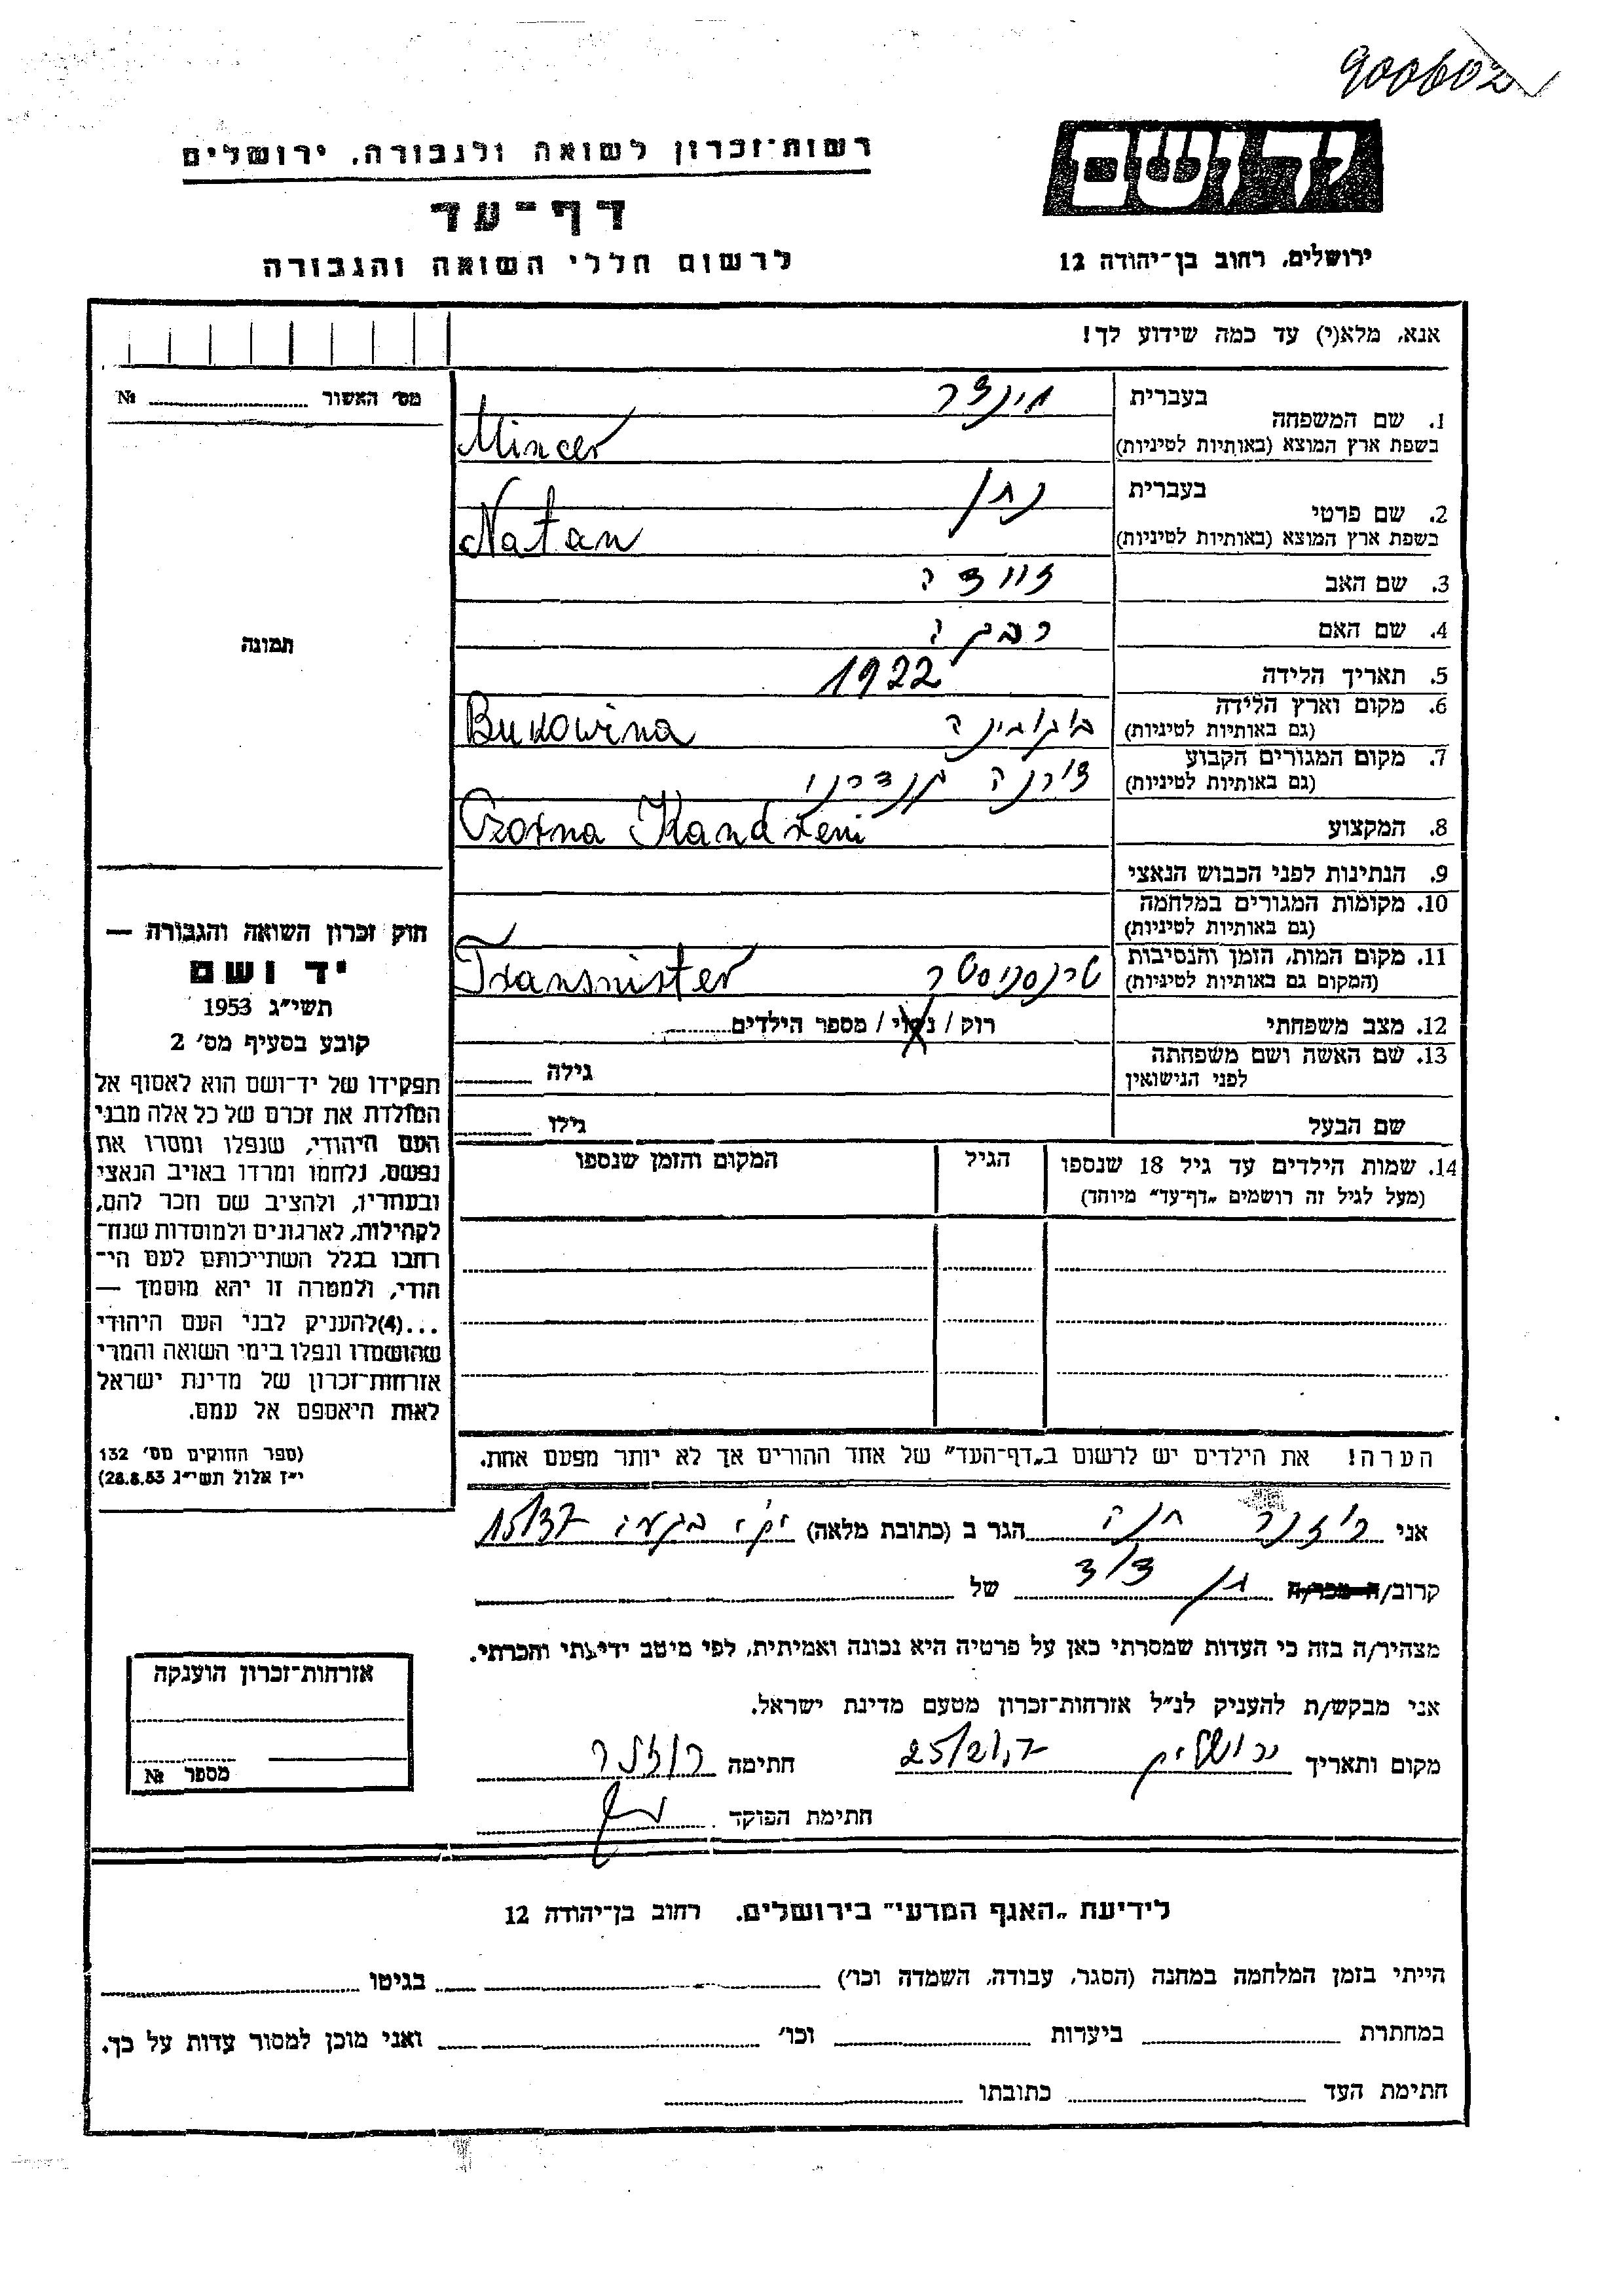 900602
יד ושם
ירושלים, רחוב בן־יהודה 12
רשות־זכרון לשואה ולגבורה, ירושלים
דף־עד
לרשום חללי השואה והגבורה
אנא, מלא(י) עד כמה שידוע לך!
מס׳ האשור № 
בעברית מינצר
1. שם המשפחה
בשפת ארץ המוצא (באותיות לטיניות) Mincer
בעברית נתן
2. שם פרטי
בשפת ארץ המוצא (באותיות לטיניות) Natan
3. שם האב
4. שם האם רבקה
5. תאריך הלידה 1922
6. מקום וארץ הלידה
(גם באותיות לטיניות) בוקובינה Bukowina
7. מקום המגורים הקבוע
(גם באותיות לטיניות) צורנה קנדרני
8. המקצוע Czorna Kandreni
9. הנתינות לפני הכבוש הנאצי
10. מקומות המגורים במלחמה
(גם באותיות לטיניות)
11. מקום המות, הזמן והנסיבות
(המקום גם באותיות לטיניות) טרנסניסטר Transnister
12. מצב משפחתי רוק / נשוי / מספר הילדים
13. שם האשה ושם משפחתה
לפני הנישואין גילה
שם הבעל גילו
14. שמות הילדים עד גיל 18 שנספו הגיל המקום והזמן שנספו
(מעל לגיל זה רושמים „דף־עד״ מיוחד)
תמונה
חוק זכרון השואה והגבורה —
יד ושם
תשי״ג 1953
קובע בסעיף מס׳ 2
תפקידו של יד־ושם הוא לאסוף אל
המולדת את זכרם של כל אלה מבני
העם היהודי, שנפלו ומסרו את
נפשם, נלחמו ומרדו באויב הנאצי
ובעוזריו, ולהציב שם וזכר להם,
לקהילות, לארגונים ולמוסדות שנח־
רבו בגלל השתייכותם לעם הי־
הודי, ולמטרה זו יהא מוסמך —
...(4)להעניק לבני העם היהודי
שהושמדו ונפלו בימי השואה והמרי
אזרחות־זכרון של מדינת ישראל
לאות היאספם אל עמם.
(ספר החוקים מס׳ 132
י״ז אלול תשי״ג 28.8.53)
הערה! את הילדים יש לרשום ב„דף־העד״ של אחד ההורים אך לא יותר מפעם אחת.
אני רוזנר חנה הגר ב (כתובת מלאה) 15/37
קרוב/ה מכר/ה בן דוד של
מצהיר/ה בזה כי העדות שמסרתי כאן על פרטיה היא נכונה ואמיתית, לפי מיטב ידיעתי והכרתי.
אני מבקש/ת להעניק לנ״ל אזרחות־זכרון מטעם מדינת ישראל.
מקום ותאריך ירושלים חתימה רוזנר
חתימת הפוקד
אזרחות־זכרון הוענקה
מספר №
לידיעת „האגף המדעי״ בירושלים, רחוב בן־יהודה 12
הייתי בזמן המלחמה במחנה (הסגר, עבודה, השמדה וכו׳) בגיטו
במחתרת ביערות וכו׳ ואני מוכן למסור עדות על כך.
חתימת העד כתובתו